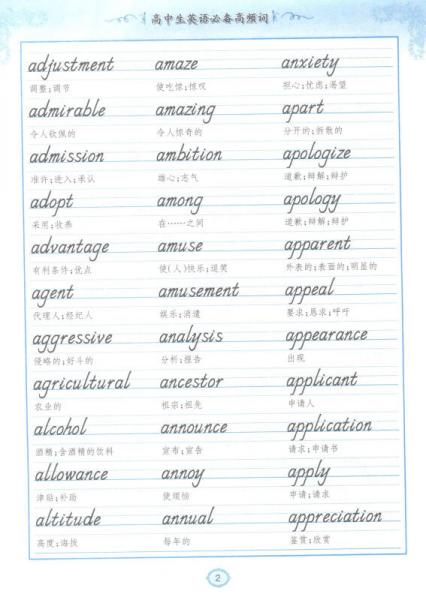 高中生英语必备高频词
adjustment amaze anxiety
调整;调节 使吃惊;惊叹 担心;忧虑;渴望
admirable amazing apart
令人钦佩的 令人惊奇的 分开的;拆散的
admission ambition apologize
准许;进入;承认 雄心;志气 道歉;辩解;辩护
adopt among apology
采用;收养 在……之间 道歉;辩解;辩护
advantage amuse apparent
有利条件;优点 使(人)快乐;逗笑 外表的;表面的;明显的
agent amusement appeal
代理人;经纪人 娱乐;消遣 要求;恳求;呼吁
aggressive analysis appearance
侵略的;好斗的 分析;报告 出现
agricultural ancestor applicant
农业的 祖宗;祖先 申请人
alcohol announce application
酒精;含酒精的饮料 宣布;宣告 请求;申请书
allowance annoy apply
津贴;补助 使烦恼 申请;请求
altitude annual appreciation
高度;海拔 每年的 鉴赏;欣赏
2